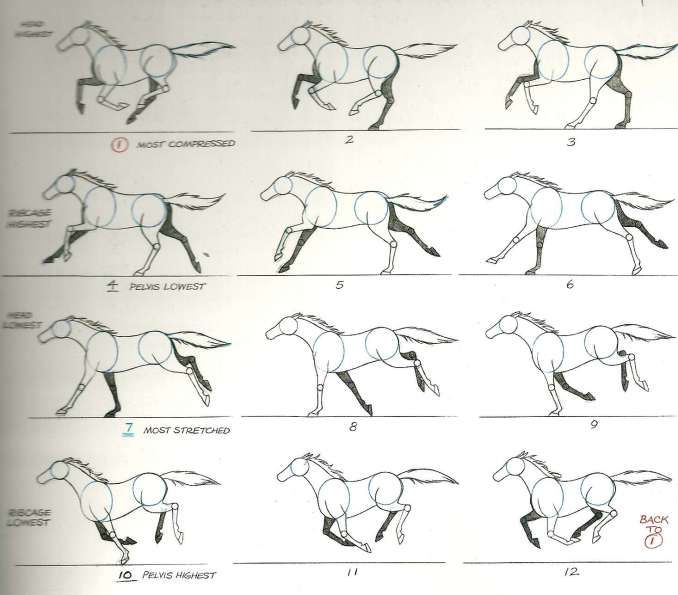 HEAD
HIGHEST
1 MOST COMPRESSED
2
3
RIBCAGE
HIGHEST
4 PELVIS LOWEST
5
6
HEAD
LOWEST
7 MOST STRETCHED
8
9
RIBCAGE
LOWEST
10 PELVIS HIGHEST
11
12
BACK
TO
1